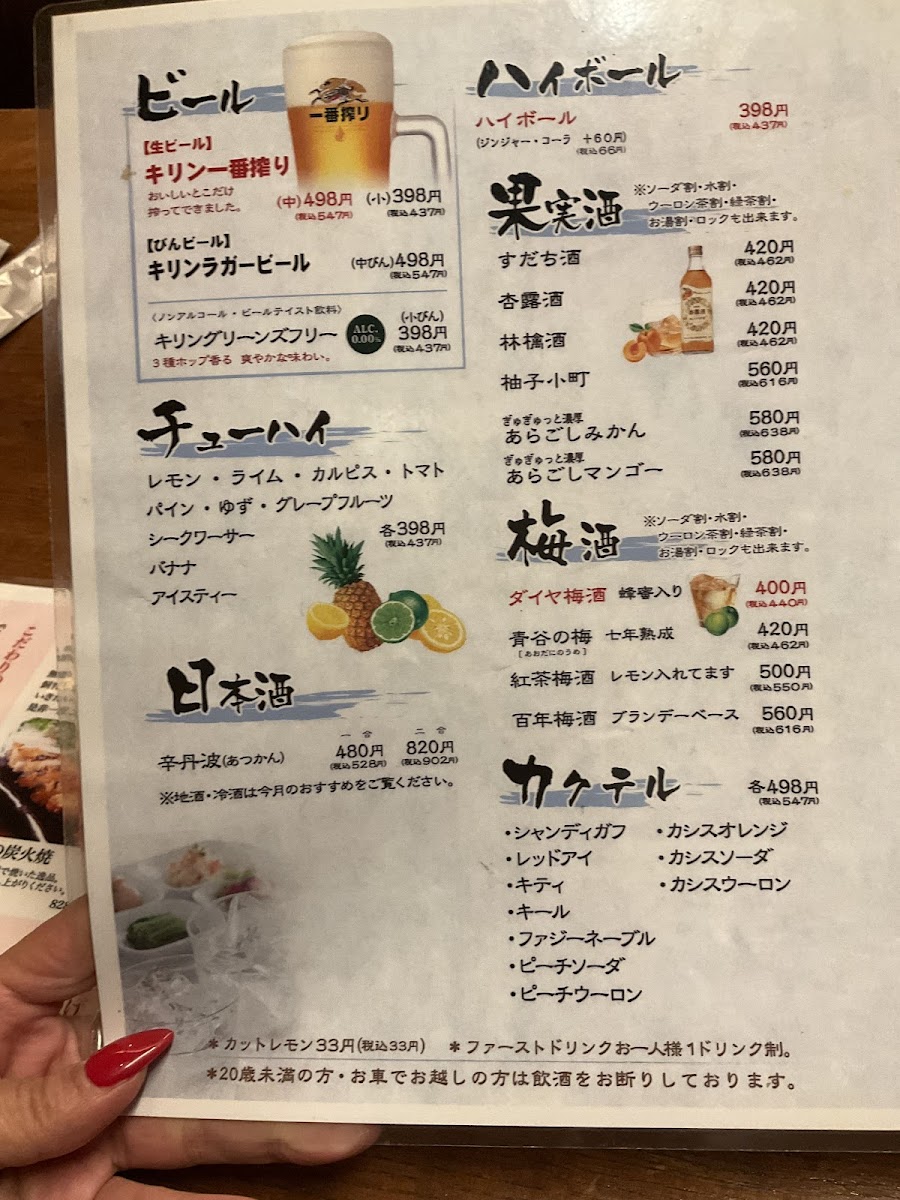 ビール
一番搾り
【生ビール】
キリン一番搾り
おいしいとこだけ
搾ってできました。
(中)498円 (小)398円
(税込547円) (税込437円)
【びんビール】
キリンラガービール (中びん)498円
(税込547円)
〈ノンアルコール・ビールテイスト飲料〉 (小びん)
キリングリーンズフリー ALC. 0.00% 398円
3種ホップ香る 爽やかな味わい。 (税込437円)
チューハイ
レモン・ライム・カルピス・トマト
パイン・ゆず・グレープフルーツ
シークワーサー 各398円
(税込437円)
バナナ
アイスティー
日本酒
一合 二合
辛丹波(あつかん) 480円 820円
(税込528円) (税込902円)
※地酒・冷酒は今月のおすすめをご覧ください。
ハイボール
ハイボール 398円
(税込437円)
(ジンジャー・コーラ +60円)
(税込66円)
果実酒
※ソーダ割・水割・
ウーロン茶割・緑茶割・
お湯割・ロックも出来ます。
すだち酒 420円
(税込462円)
杏露酒 420円
(税込462円)
林檎酒 420円
(税込462円)
柚子小町 560円
(税込616円)
ぎゅぎゅっと濃厚
あらごしみかん 580円
(税込638円)
ぎゅぎゅっと濃厚
あらごしマンゴー 580円
(税込638円)
梅酒
※ソーダ割・水割・
ウーロン茶割・緑茶割・
お湯割・ロックも出来ます。
ダイヤ梅酒 蜂蜜入り 400円
(税込440円)
青谷の梅 七年熟成 420円
[あおだにのうめ] (税込462円)
紅茶梅酒 レモン入れてます 500円
(税込550円)
百年梅酒 ブランデーベース 560円
(税込616円)
カクテル 各498円
(税込547円)
・シャンディガフ ・カシスオレンジ
・レッドアイ ・カシスソーダ
・キティ ・カシスウーロン
・キール
・ファジーネーブル
・ピーチソーダ
・ピーチウーロン
＊カットレモン33円(税込33円) ＊ファーストドリンクお一人様1ドリンク制。
＊20歳未満の方・お車でお越しの方は飲酒をお断りしております。
こだわりの
炭火焼
で焼いた逸品。
上がりください。
828